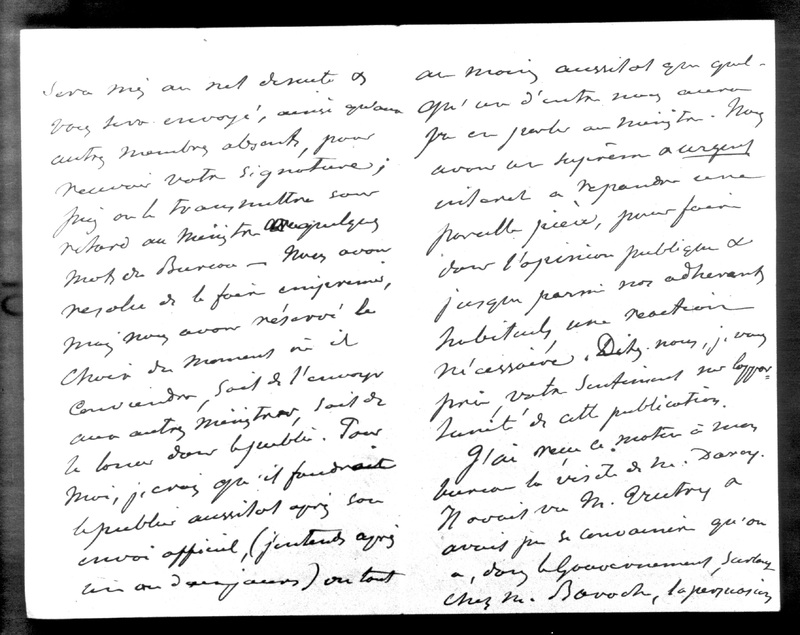 sera mis au net ensuite &
vous sera envoyé, ainsi qu'aux
autres membres absents, pour
recevoir votre signature ;
puis on le transmettra sans
retard au Ministre quelques
mots du Bureau — Nous avons
résolu de le faire imprimer,
mais nous avons réservé le
choix du moment où il
conviendra, soit de l'envoyer
aux autres ministres, soit de
le lancer dans le public. Pour
moi, je crois qu'il faudrait
le publier aussitôt après son
envoi officiel, (j'entends après
un ou deux jours) ou tout
au moins aussitôt que quel-
qu'un d'entre nous aura
pu en parler au Ministre. Nous
avons un suprême & urgent
intérêt à répandre une
pareille pièce, pour faire
dans l'opinion publique &
jusque parmi nos adhérents
habituels une réaction
nécessaire. Dites nous, je vous
prie, votre sentiment sur l'oppor-
tunité de cette publication.
J'ai reçu ce matin à mon
bureau la visite de M. Darcy.
Il avait vu M. &
avait pu se convaincre qu'on
a, dans le Gouvernement, surtout
chez M. Baroche, la persuasion